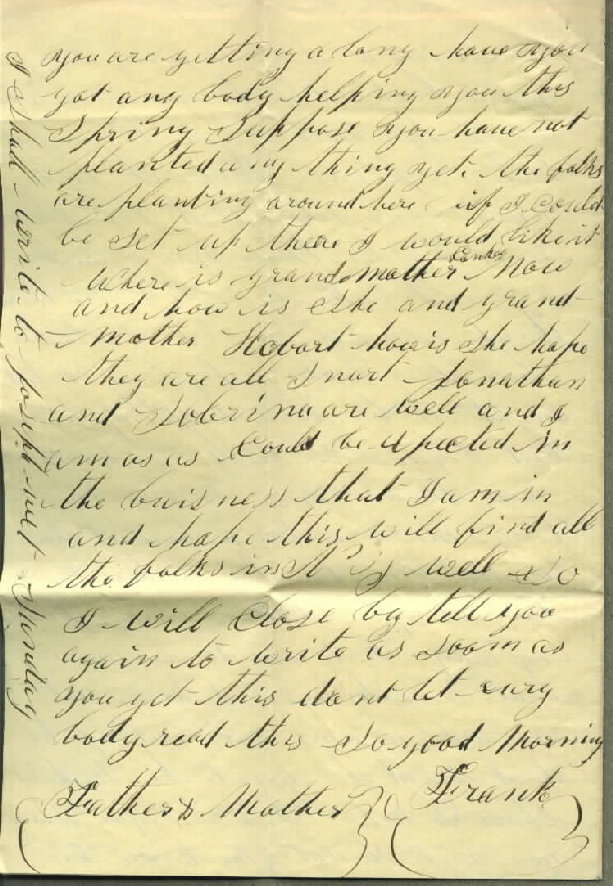 you are getting a long have you
got any body helping you this
Spring Suppose you have not
planted any thing yet. the folks
are planting around here if I could
be set up there I would like it
Where is grandmother Now
and how is she and grand-
mother Hobart how is she hope
they are all Smart Jonathan
and Sobrina are well and I
am as as Could be expected in
the buisness that I am in
and hope this will find all
the folks in well So
I will Close by tell you
again to write as Soon as
you get this dont let evry
body read this So good Morning
Father & Mother Frank
I shall write to Joseph next Sunday